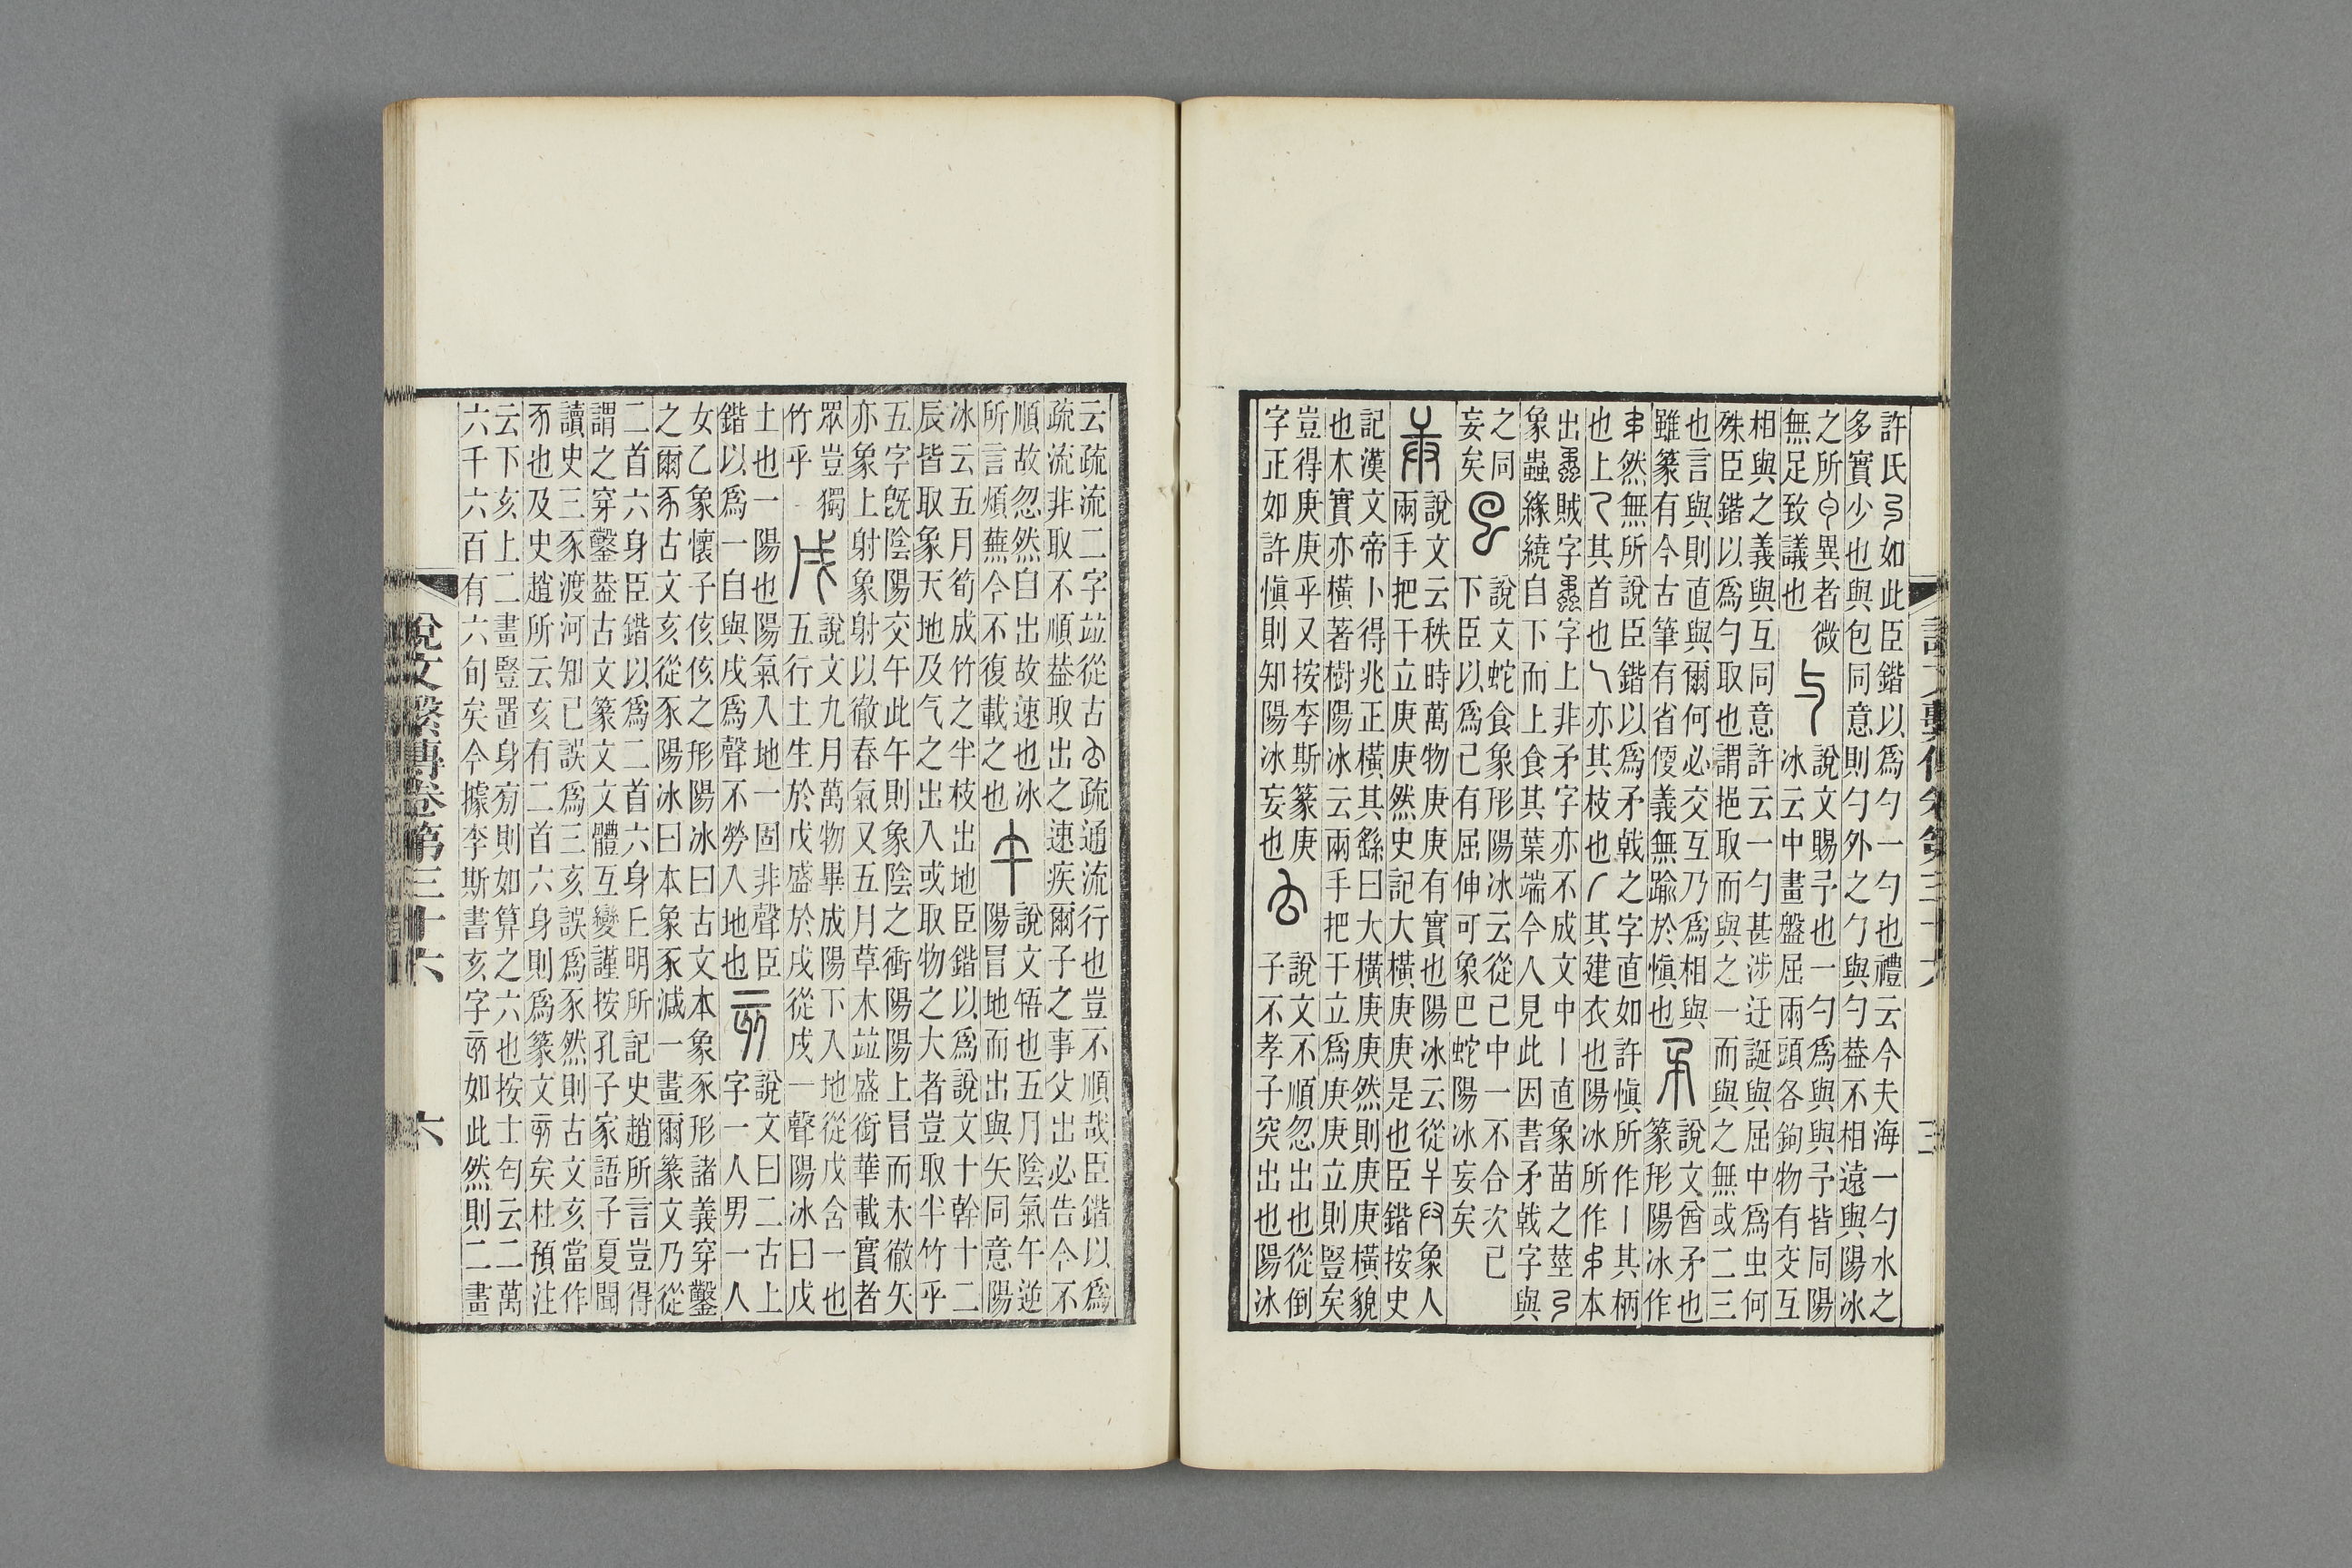 許氏如此臣鍇以爲勺一勺也禮云今夫海一勺水之
多實少也與包同意則勺外之勹與勺葢不相遠與陽冰
之所異者微
無足致議也
与
說文賜予也一勺爲與與予皆同陽
冰云中畫盤屈兩頭各鉤物有交互
相與之義與互同意許云一勺甚涉迂誕與屈中爲虫何
殊臣鍇以爲勺取也謂挹取而與之一而與之無或二三
也言與則直與爾何必交互乃爲相與
雖篆有今古筆有省㑮義無踰於愼也
矛
說文酋矛也
篆形陽冰作
然無所說臣鍇以爲矛戟之字直如許愼所作丨其柄
也上乁其首也乀亦其枝也丿其建衣也陽冰所作本
出蟊賊字蟊字上非矛字亦不成文中丨直象苗之莖
象蟲緣繞自下而上食其葉端今人見此因書矛戟字與
之同
妄矣
巳
說文蛇食象形陽冰云從己中一不合次己
下臣以爲己有屈伸可象巴蛇陽冰妄矣
庚
說文云秩時萬物庚庚有實也陽冰云從干臼象人
兩手把干立庚庚然史記大橫庚庚是也臣鍇按史
記漢文帝卜得兆正橫其繇曰大橫庚庚然則庚庚橫貌
也木實亦橫著樹陽冰云兩手把干立爲庚庚立則豎矣
豈得庚庚乎又按李斯篆庚
字正如許愼則知陽冰妄也
𠫓
說文不順忽出也從倒
子不孝子突出也陽冰
云疏流二字竝從古𠫓疏通流行也豈不順哉臣鍇以爲
疏流非取不順葢取出之速疾爾子之事父出必告今不
順故忽然自出故速也冰
所言煩蕪今不復載之也
午
說文啎也五月陰氣午逆
陽冒地而出與矢同意陽
冰云五月筍成竹之半枝出地臣鍇以爲說文十幹十二
辰皆取象天地及气之出入或取物之大者豈取半竹乎
五字旣陰陽交午此午則象陰之衝陽陽上冒而未徹矢
亦象上射象射以徹春氣又五月草木竝盛銜華載實者
眾豈獨
竹乎
戌
說文九月萬物畢成陽下入地從戊含一也
五行土生於戊盛於戌從戊一聲陽冰曰戊
土也一陽也陽氣入地一固非聲臣
鍇以爲一自與戌爲聲不勞入地也
亥
說文曰二古上
字一人男一人
女乙象懷子侅侅之形陽冰曰古文本象豕形諸義穿鑿
之爾𠀅古文亥從豕陽冰曰本象豕減一畫爾篆文乃從
二首六身臣鍇以爲二首六身丘明所記史趙所言豈得
謂之穿鑿葢古文篆文文體互變謹按孔子家語子夏聞
讀史三豕渡河知已誤爲三亥誤爲豕然則古文亥當作
𠀅也及史趙所云亥有二首六身則爲篆文矣杜預注
云下亥上二畫豎置身㫄則如算之六也按士匄云二萬
六千六百有六旬矣今據李斯書亥字如此然則二畫
說文繫傳卷第三十六
六